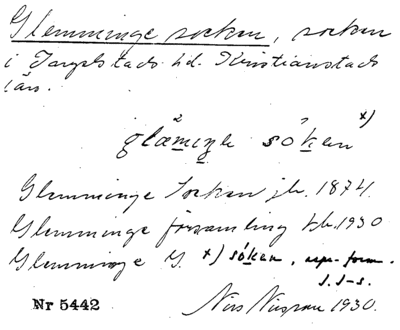 Glemminge socken, socken
i Ingelstads hd. Kristianstads
län.
socken
Glemminge socken jb. 1874.
Glemminge församling kb. 1930
Glemminge G. x) söken, upr. form.
Nr 5442
1930.